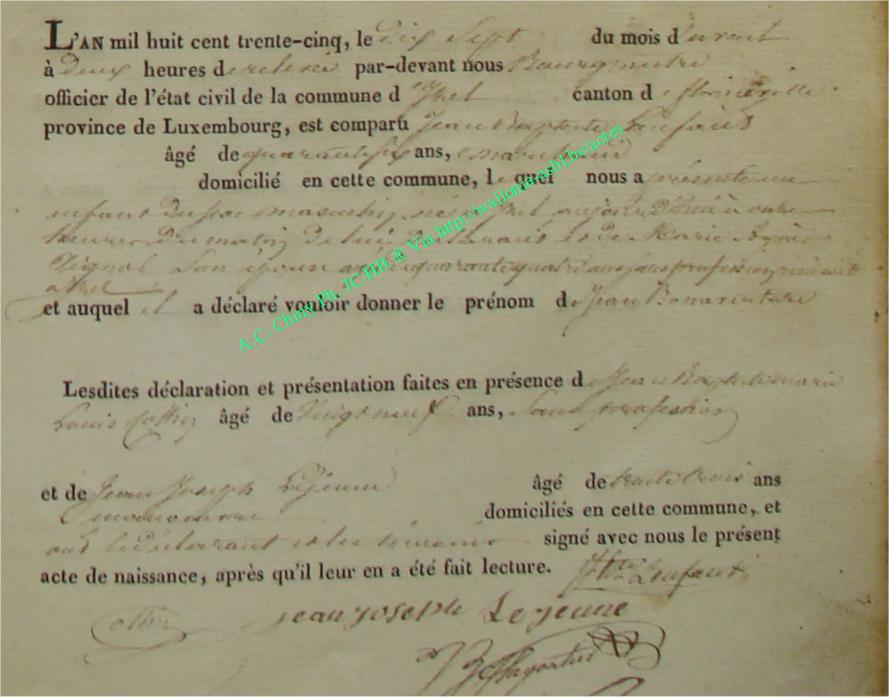 L'AN mil huit cent trente-cinq, le dix Sept du mois d'avril
à deux heures de relevée par-devant nous Bourgmestre
officier de l'état civil de la commune d'Izel canton de florenville
province de Luxembourg, est comparu Jean Baptiste Lenfant
âgé de quarante six ans, marchand
domicilié en cette commune, lequel nous a présenté un
enfant du sexe masculin, né à Izel aujourd'hui à onze
heures du matin, de lui déclarant et de Marie Agnès
son épouse agée quarante quatre ans sans profession,
à Izel
et auquel il a déclaré vouloir donner le prénom de Jean Bonaventure
Lesdites déclaration et présentation faites en présence de Jean Baptiste marie
Louis âgé de vingt neuf ans, Sans profession
et de Jean Joseph Lejeune âgé de trente trois ans
domiciliés en cette commune, et
ont le déclarant et les témoins signé avec nous le présent
acte de naissance, après qu'il leur en a été fait lecture. Lenfant
jean joseph Lejeune
A.C. Chiny Ph. JC HB ® Via http://wallonica.shl.be/actes